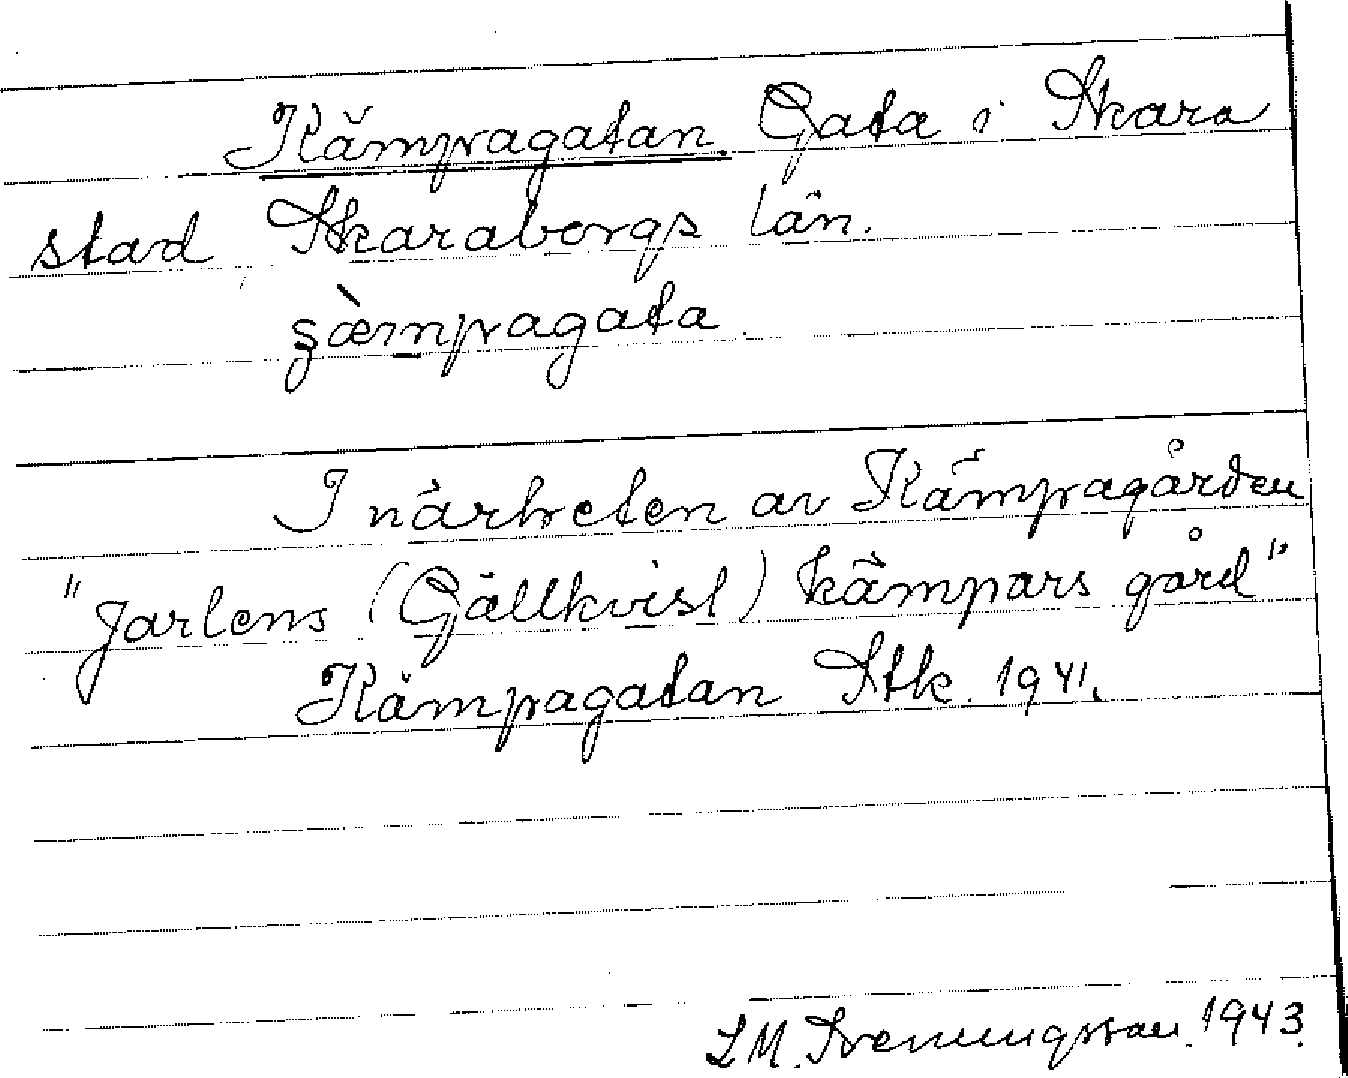 Kämpagatan. Gata i Skara
stad Skaraborgs län.
ʂæ̀mpagata
I närheten av Kämpagården
"Jarlens (Gällkvist) kämpars gård"
Kämpagatan Stk. 1941.
L M. Svenungsson. 1943.